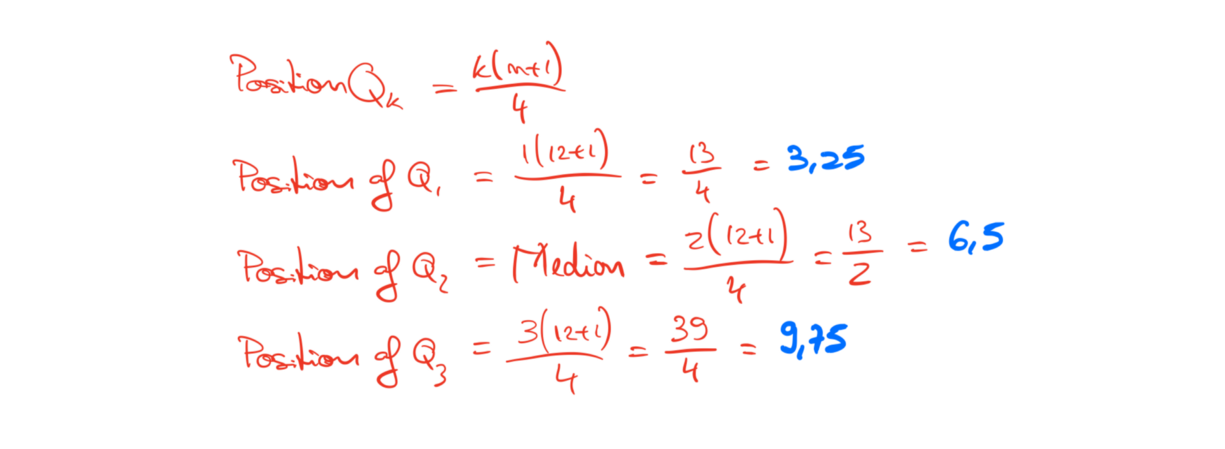 Position Qk = k(n+1)/4
Position of Q1 = 1(12+1)/4 = 13/4 = 3,25
Position of Q2 = Median = 2(12+1)/4 = 13/2 = 6,5
Position of Q3 = 3(12+1)/4 = 39/4 = 9,75